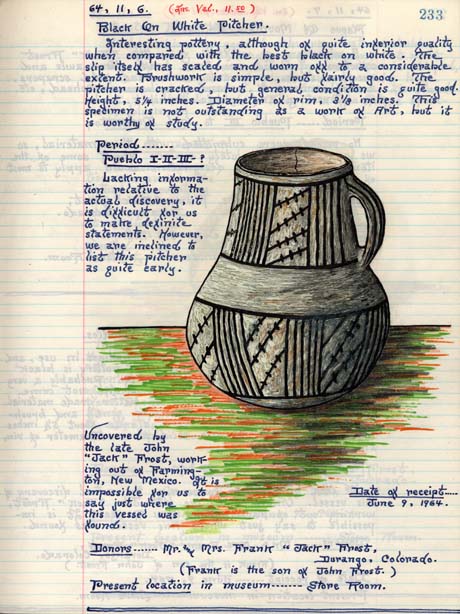 64, 11, 6. (In. Val., 11.50)
233
Black On White Pitcher.
Interesting pottery, although of quite inferior quality
when compared with the best black on white. The
slip itself has scaled and worn off to a considerable
extent. Brushwork is simple, but fairly good. The
pitcher is cracked, but general condition is quite good.
Height, 5 1/4 inches. Diameter of rim, 3 1/8 inches. This
specimen is not outstanding as a work of Art, but it
is worthy of study.
Period.......
Pueblo I-II-III-?
Lacking informa-
tion relative to the
actual discovery, it
is difficult for us
to make definite
statements. However,
we are inclined to
list this pitcher
as quite early.
Uncovered by
the late John
"Jack" Frost, work-
ing out of Farming-
ton, New Mexico. It is
impossible for us to
say just where
this vessel was
found.
Date of receipt....
June 9, 1964.
Donors...... Mr. & Mrs. Frank "Jack" Frost,
Durango, Colorado.
(Frank is the son of John Frost.)
Present location in museum------- Store Room.